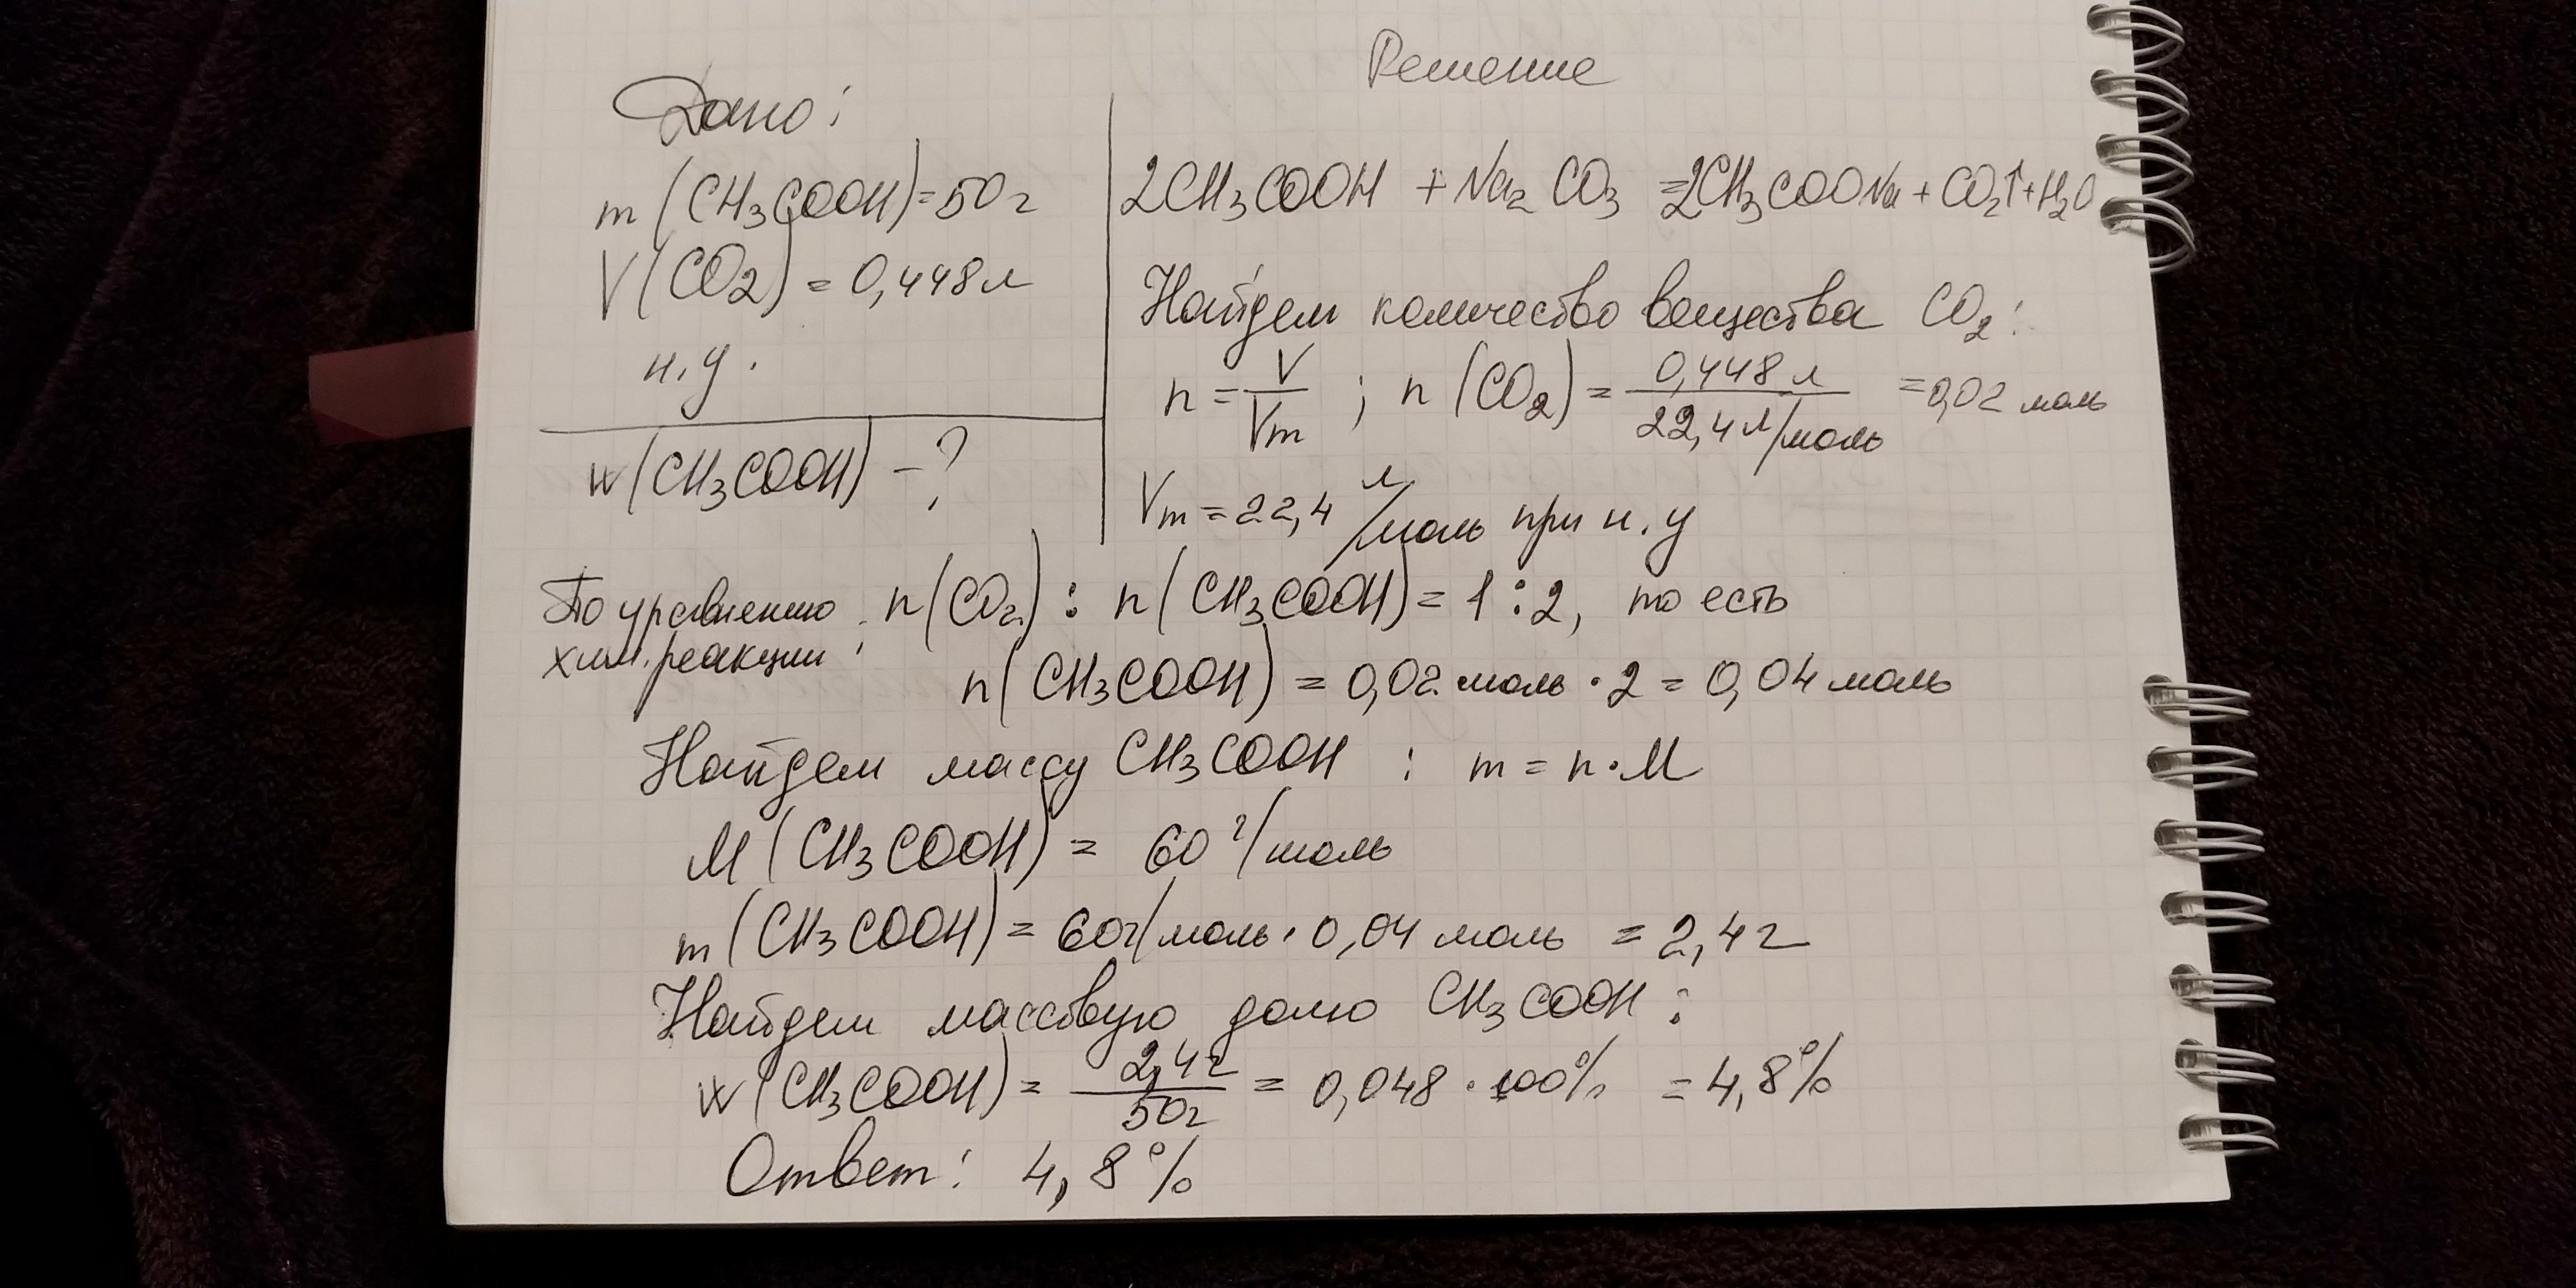 Решение
Дано:
m(CH₃COOH)=50г
V(CO₂)=0,448л
н.у.
w(CH₃COOH)-?
2CH₃COOH + Na₂CO₃ =2CH₃COONa + CO₂↑+H₂O
Найдем количество вещества CO₂:
n = V/Vm ; n(CO₂) = 0,448л/22,4л/моль =0,02 моль
Vm = 22,4 л/моль при н.у
По уравнению хим.реакции: n(CO₂) : n(CH₃COOH) = 1:2, то есть
n(CH₃COOH) = 0,02 моль · 2 = 0,04 моль
Найдем массу CH₃COOH : m = n·M
M(CH₃COOH) = 60 г/моль
m(CH₃COOH) = 60г/моль · 0,04 моль = 2,4г
Найдем массовую долю CH₃COOH :
w(CH₃COOH) = 2,4г/50г = 0,048 · 100% = 4,8%
Ответ: 4,8%